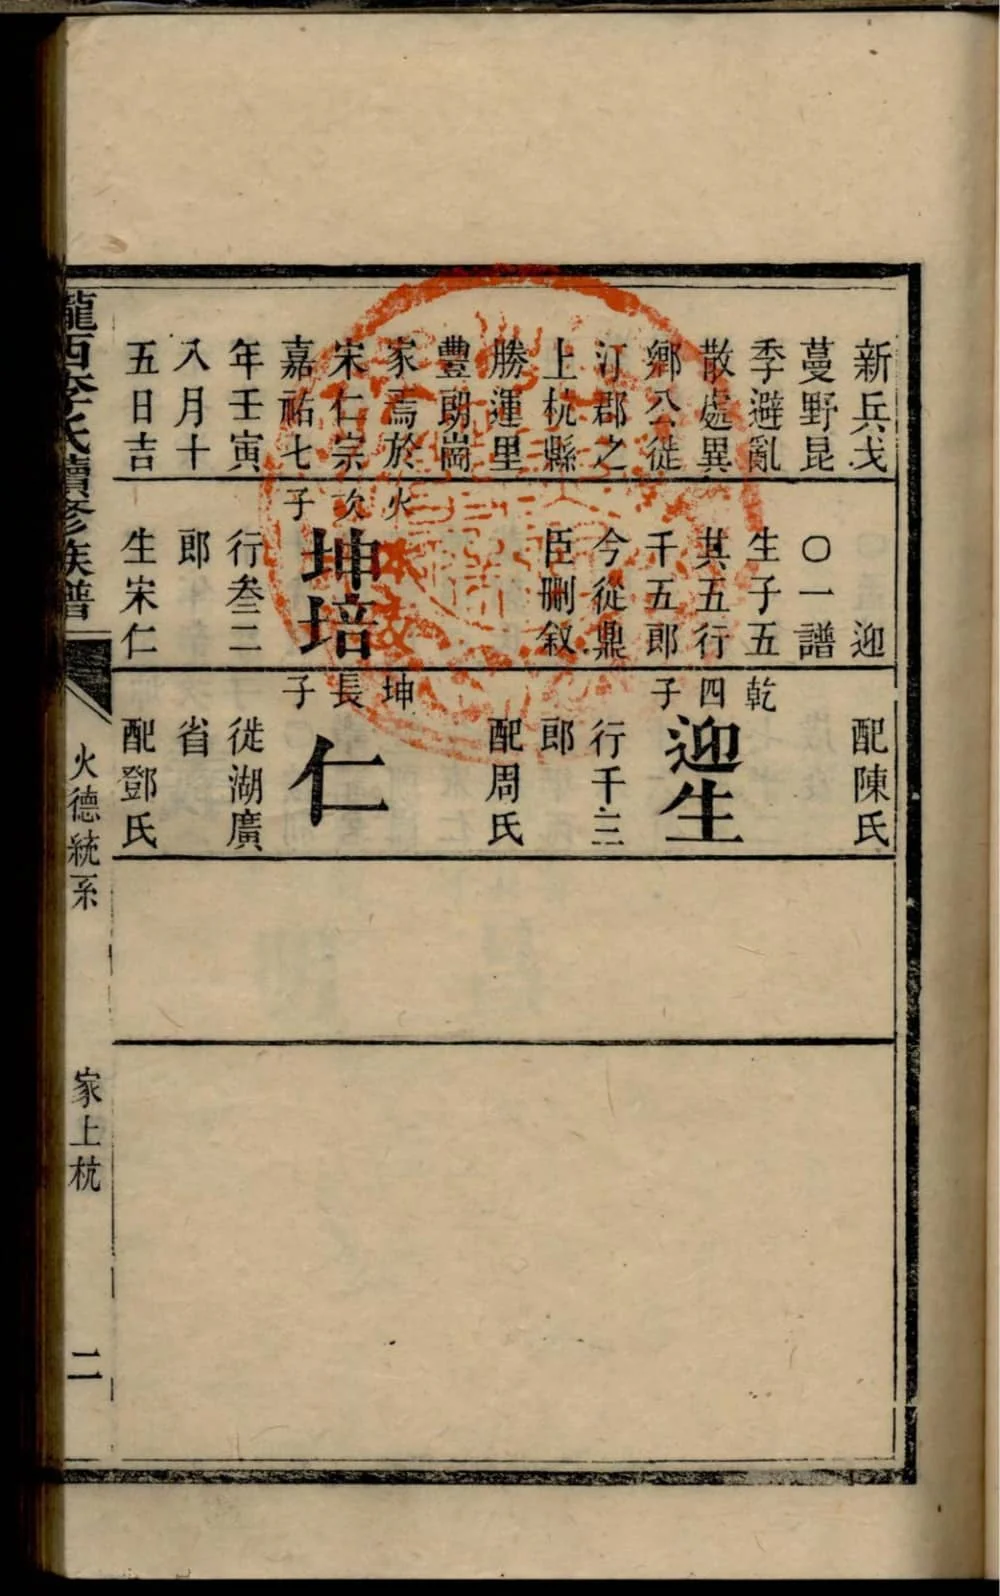 新兵戈
蔓野昆
季避亂
散處異
鄉公徙
汀郡之
上杭縣
勝運里
豐朗崗
家焉於
宋仁宗
嘉祐七
年壬寅
八月十
五日吉
迎
〇一譜
生子五
其五行
千五郎
今從鼎
臣刪敘
火
次
子
坤培
行叁二
郎
生宋仁
配陳氏
乾
四
子
迎生
行千三
郎
配周氏
坤
長
子
仁
徙湖廣
省
配鄧氏
隴西李氏續修族譜
火德統系
家上杭
二